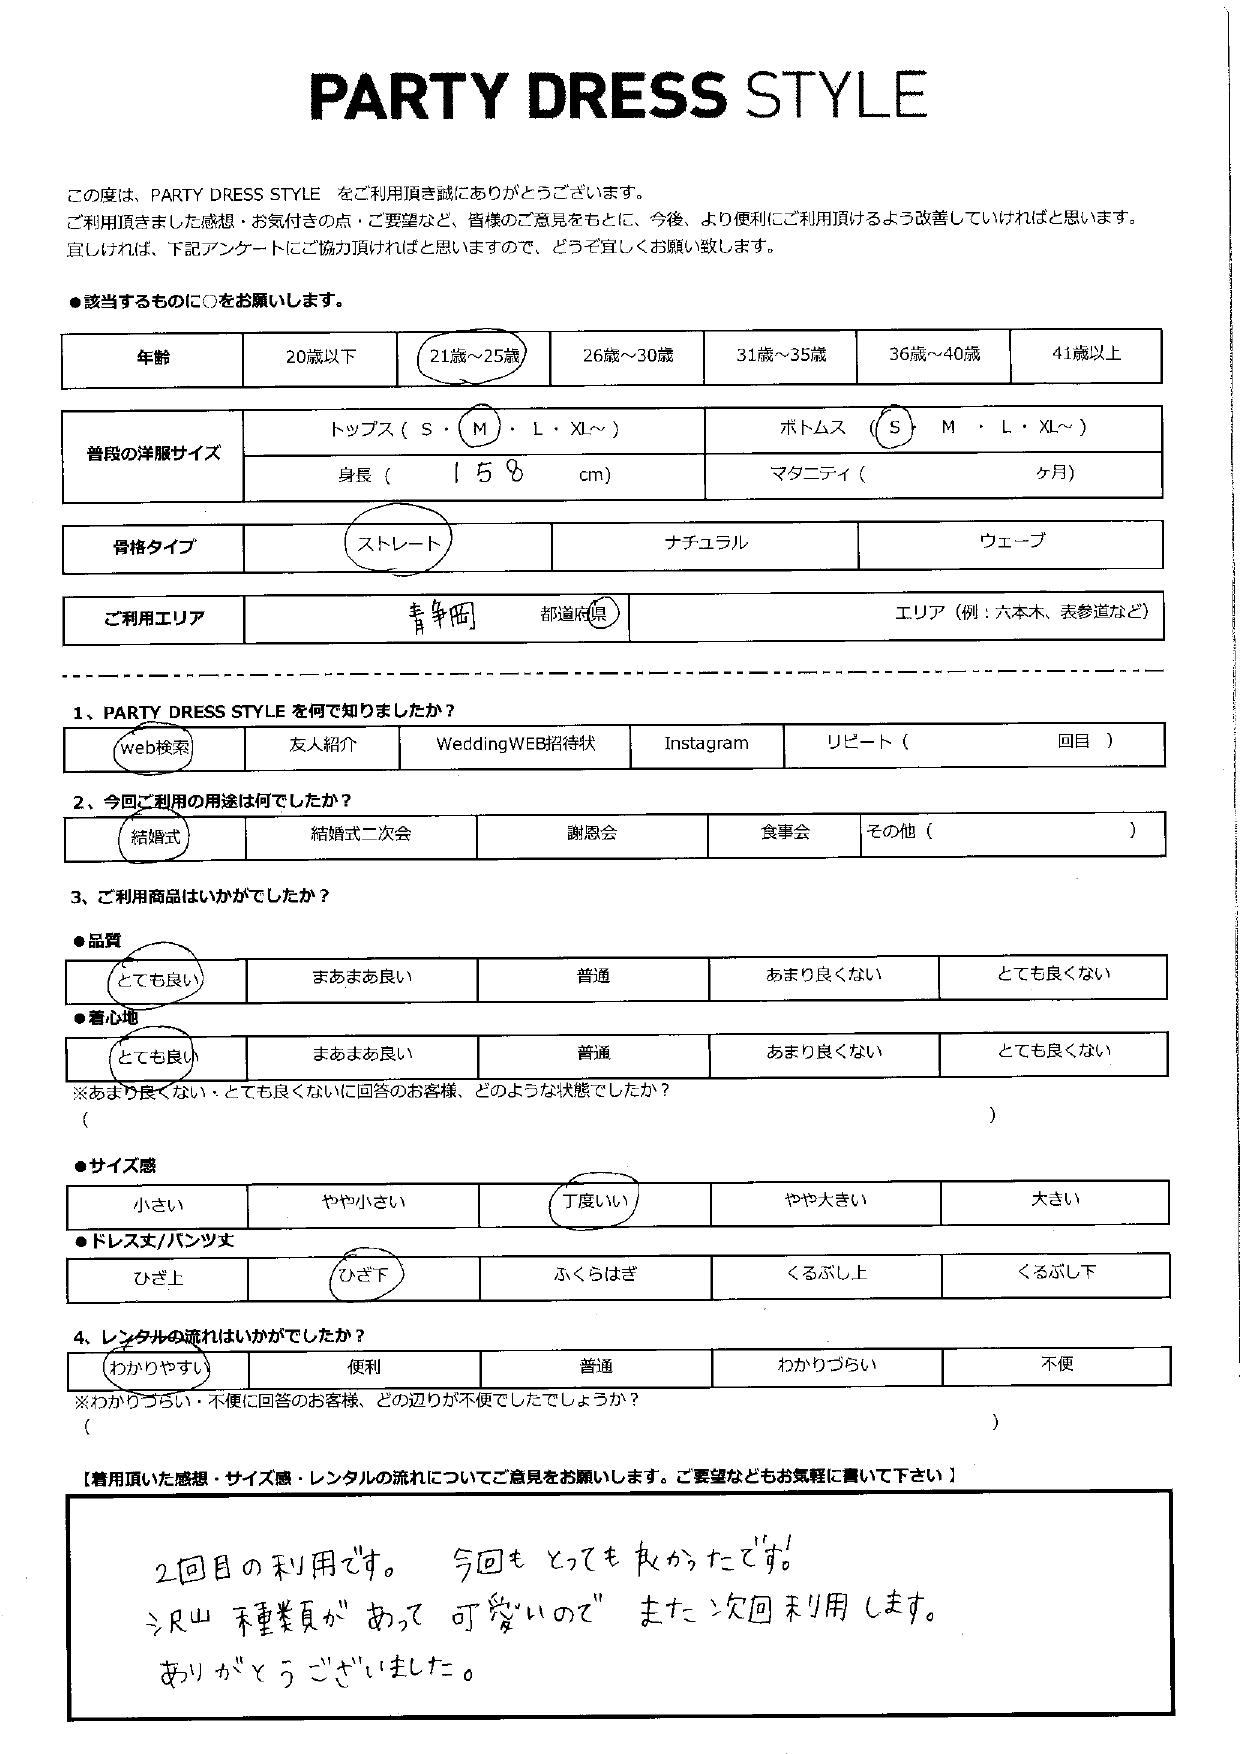 PARTY DRESS STYLE
この度は、PARTY DRESS STYLE をご利用頂き誠にありがとうございます。
ご利用頂きました感想・お気付きの点・ご要望など、皆様のご意見をもとに、今後、より便利にご利用頂けるよう改善していければと思います。
宜しければ、下記アンケートにご協力頂ければと思いますので、どうぞ宜しくお願い致します。
●該当するものに○をお願いします。
年齢 20歳以下 21歳～25歳 26歳～30歳 31歳～35歳 36歳～40歳 41歳以上
普段の洋服サイズ トップス ( S ・ M ・ L ・ XL～ ) ボトムス ( S ・ M ・ L ・ XL～ )
身長 ( 158 cm) マタニティ ( ヶ月)
骨格タイプ ストレート ナチュラル ウェーブ
ご利用エリア 静岡 都道府県 エリア（例：六本木、表参道など）
1、PARTY DRESS STYLE を何で知りましたか？
web検索 友人紹介 WeddingWEB招待状 Instagram リピート ( 回目 )
2、今回ご利用の用途は何でしたか？
結婚式 結婚式二次会 謝恩会 食事会 その他 ( )
3、ご利用商品はいかがでしたか？
●品質
とても良い まあまあ良い 普通 あまり良くない とても良くない
●着心地
とても良い まあまあ良い 普通 あまり良くない とても良くない
※あまり良くない・とても良くないに回答のお客様、どのような状態でしたか？
( )
●サイズ感
小さい やや小さい 丁度いい やや大きい 大きい
●ドレス丈/パンツ丈
ひざ上 ひざ下 ふくらはぎ くるぶし上 くるぶし下
4、レンタルの流れはいかがでしたか？
わかりやすい 便利 普通 わかりづらい 不便
※わかりづらい・不便に回答のお客様、どの辺りが不便でしたでしょうか？
( )
【着用頂いた感想・サイズ感・レンタルの流れについてご意見をお願いします。ご要望などもお気軽に書いて下さい 】
2回目の利用です。 今回も とっても 良かったです!
沢山 種類が あって 可愛いので また 次回 利用 します。
ありがとうございました。